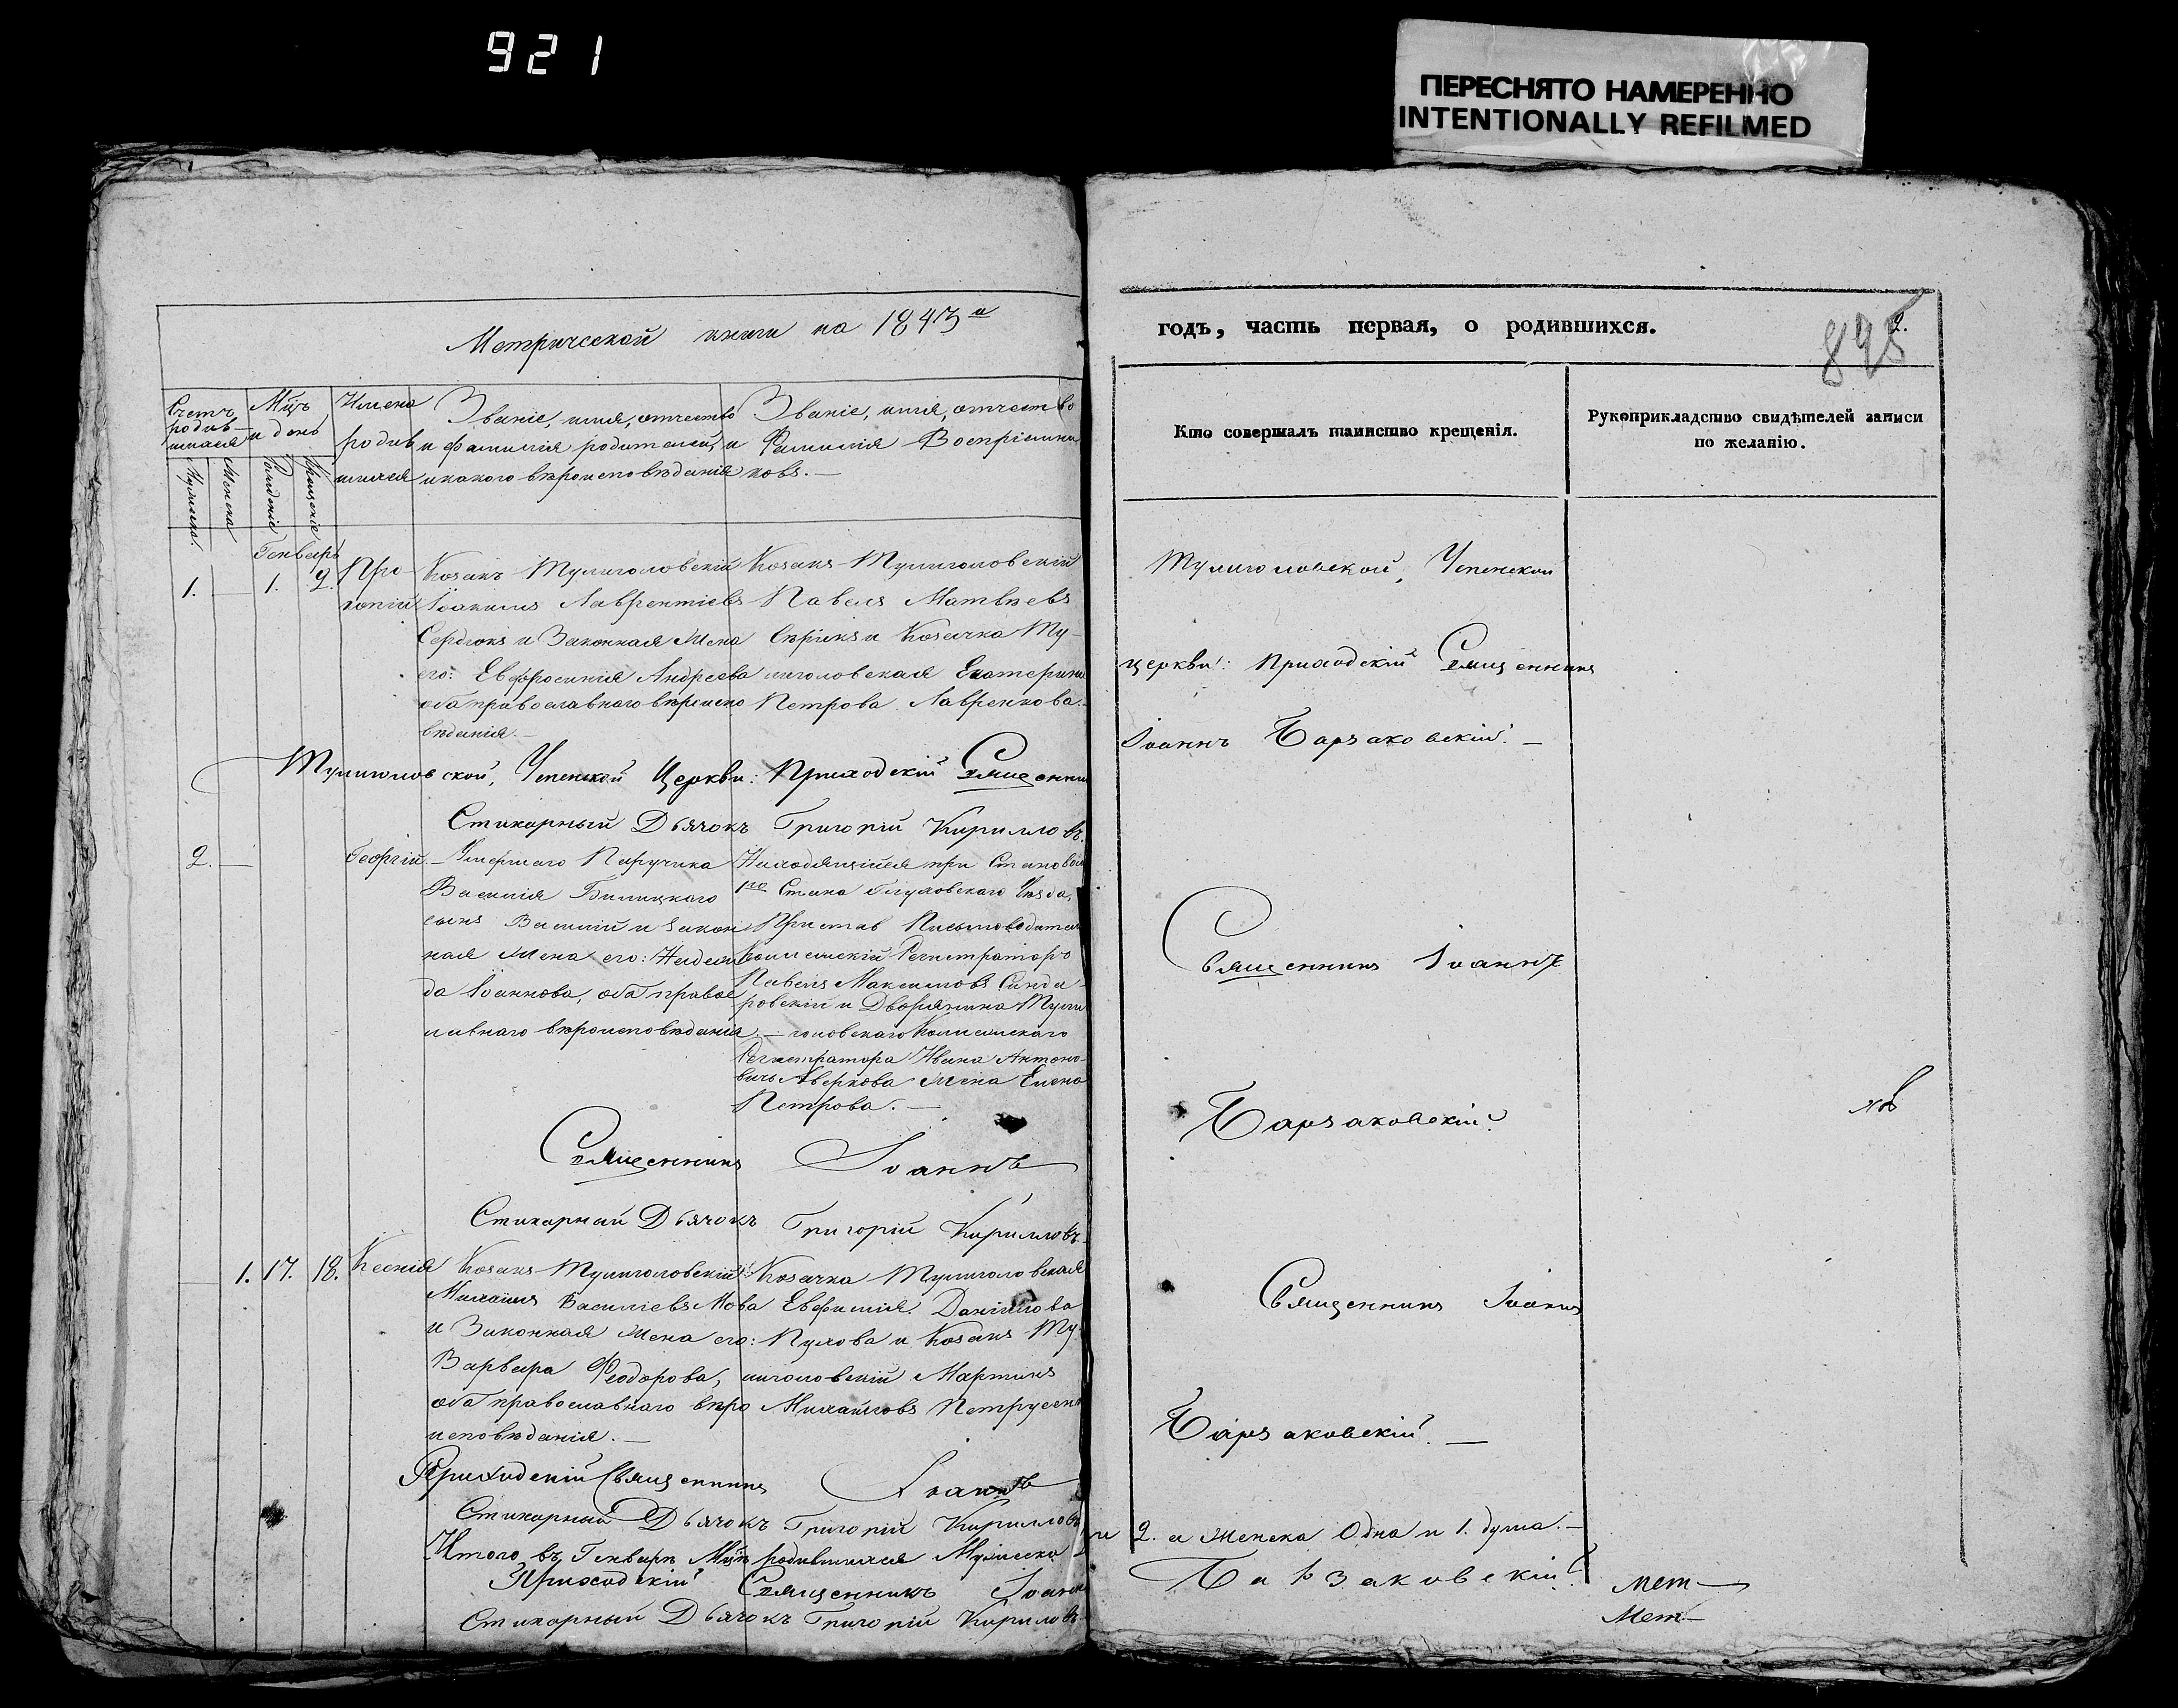 921
ПЕРЕСНЯТО НАМЕРЕННО
INTENTIONALLY REFILMED
Метрической книги на 1843й
годъ, часть первая, о родившихся.
2.
895
Счетъ родившихся
Мцъ и день
Имена родившихся
Званіе, имя, отчество и фамилія родителей, и какого вѣроисповѣданія
Званіе, имя, отчество и Фамилія Воспріемниковъ.—
Кто совершалъ таинство крещенія.
Рукоприкладство свидѣтелей записи
по желанію.
Мужеска.
Женска
Рожденіе
Крещеніе
Генварь
1. — 1. 2.
Прокопій
Козакъ Тулиголовскій
Іоакимъ Лаврентіевъ
Сердюкъ и Законная Жена
его: Евфросинія Андреева
оба православнаго вѣроиспо
вѣданія.—
Козакъ Тулиголовскій
Павелъ Матвѣевъ
Сѣрикъ и Козачка Ту-
лиголовская Екатерина
Петрова Лавренкова.
Тулиголовской, Успенской
церкви: Приходскій Священникъ
Іоаннъ Барзаковскій.—
Тулиголовской, Успенской Церкви: Приходскій Священникъ
Стихарный Дьячокъ Григорій Кирилловъ.
2. —
Георгій.—
Умершаго Паручика
Василія Билицкого
сынъ Василій и закон
ная Жена его: Надеж
да Іоаннова, оба правос
лавнаго вѣроисповѣданія.—
Находящійся при Становой
1го Стана Глуховскаго Уѣзда,
Пристав Письмоводитель
Коллежскій Регистраторъ
Павелъ Максимовъ
ровскій и Дворянина Тули
головскаго Коллежскаго
Регистратора Ивана Антоно-
вича Аверкова Жена Елена
Петрова.—
Священникъ Іоаннъ
Барзаковскій.
Священникъ Іоаннъ
Стихарный Дьячокъ Григорій Кирилловъ.
— 1. 17. 18.
Ксенія
Козакъ Тулиголовскій
Михаилъ Василіевъ Мова
и Законная Жена его:
Варвара Феодорова,
оба православнаго вѣро
исповѣданія.—
Козачка Тулиголовская
Евфимія Даніилова
Пухова и Козакъ Ту
лиголовскій Мартинъ
Михаиловъ
Священникъ Іоаннъ
Барзаковскій.—
Приходскій Священникъ Іоаннъ
Стихарный Дьячокъ Григорій Кирилловъ
Итого въ Генварѣ Мцѣ родившихся Мужеска
2. а Женска Одна и 1. душа.—
Приходскій Священникъ Іоаннъ
Барзаковскій
Стихарный Дьячокъ Григорій Кириловъ
Мет—
Мет—